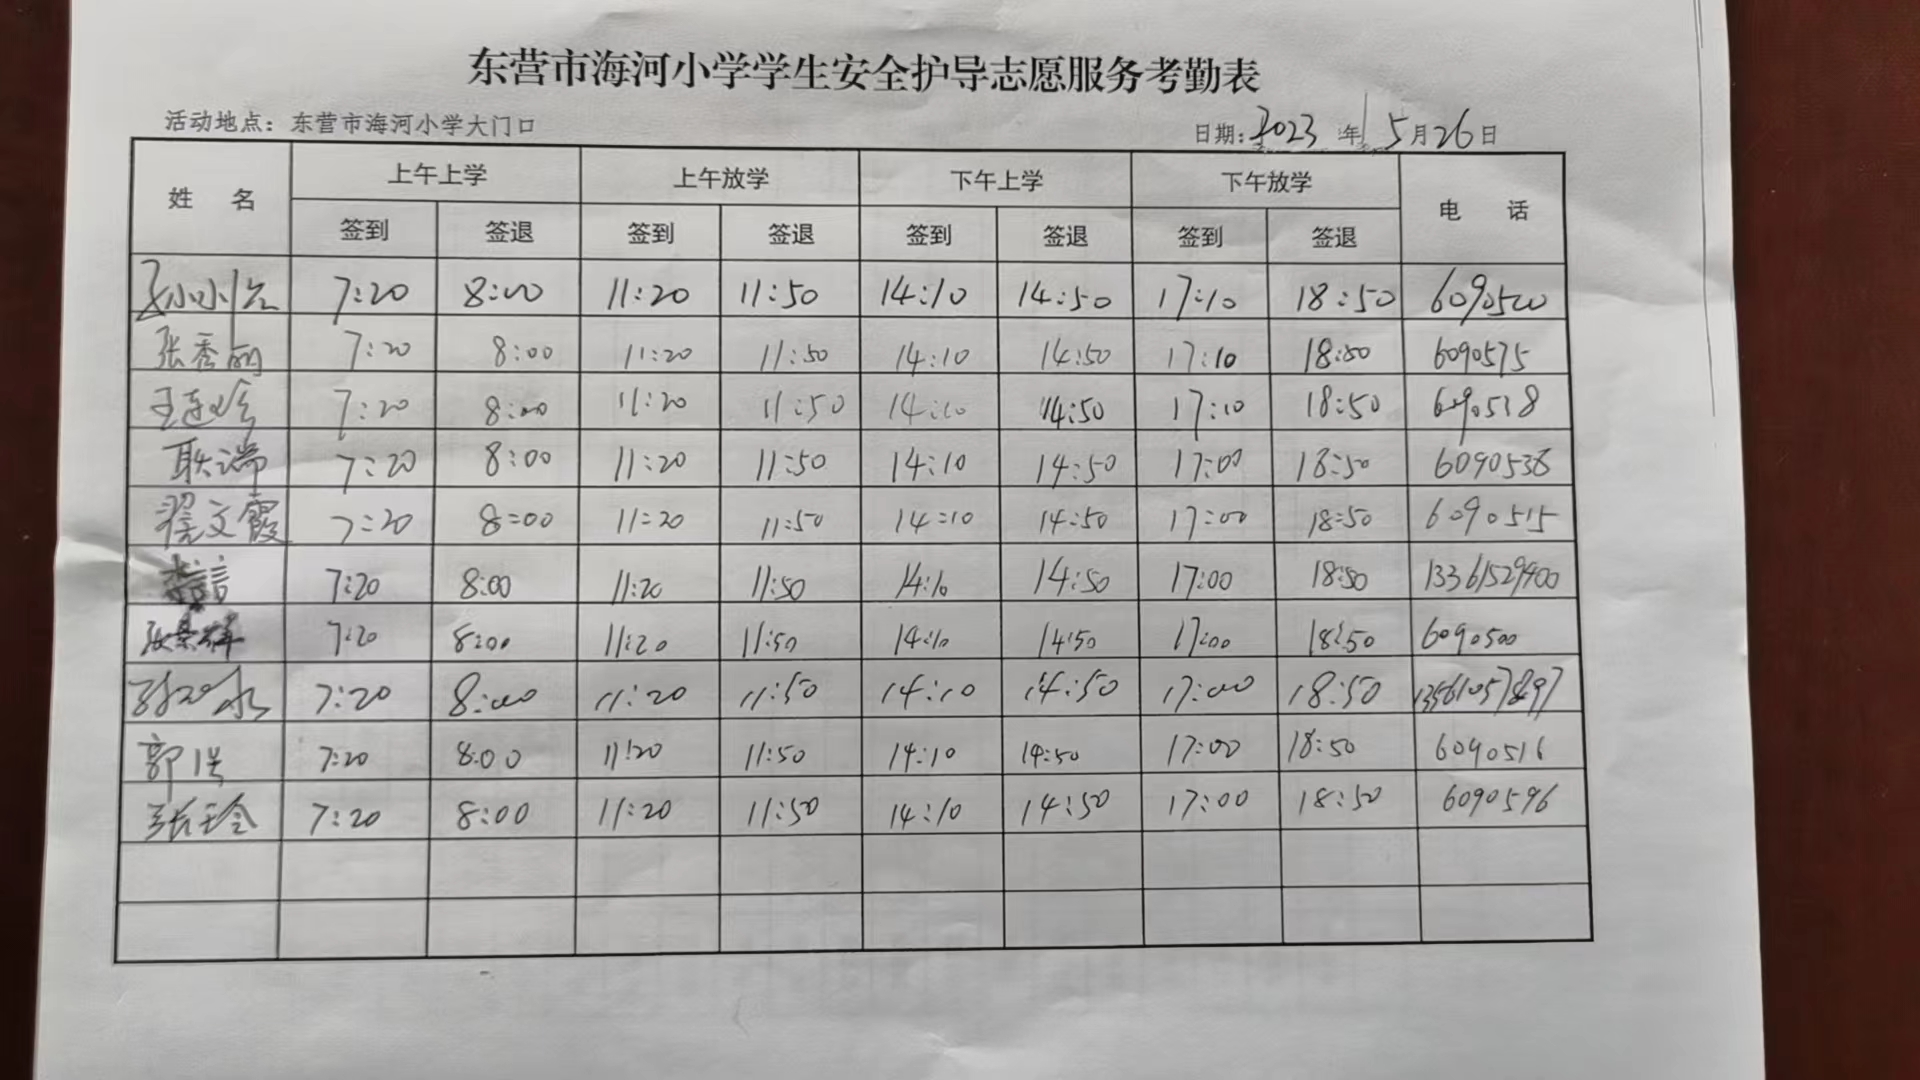 东营市海河小学学生安全护导志愿服务考勤表
活动地点：东营市海河小学大门口 日期：2023年5月26日
姓 名 上午上学 上午放学 下午上学 下午放学 电 话
签到 签退 签到 签退 签到 签退 签到 签退
7:20 8:00 11:20 11:50 14:10 14:50 17:10 18:50 6090500
张秀丽 7:20 8:00 11:20 11:50 14:10 14:50 17:10 18:50 6090575
王连珍 7:20 8:00 11:20 11:50 14:10 14:50 17:10 18:50
耿端 7:20 8:00 11:20 11:50 14:10 14:50 17:00 18:50 6090538
翟文霞 7:20 8:00 11:20 11:50 14:10 14:50 17:00 18:50 6090515
7:20 8:00 11:20 11:50 14:10 14:50 17:00 18:50 13361529400
7:20 8:00 11:20 11:50 14:10 14:50 17:00 18:50 6090500
7:20 8:00 11:20 11:50 14:10 14:50 17:00 18:50
郭洪 7:20 8:00 11:20 11:50 14:10 14:50 17:00 18:50 6090516
张玉玲 7:20 8:00 11:20 11:50 14:10 14:50 17:00 18:50 6090596